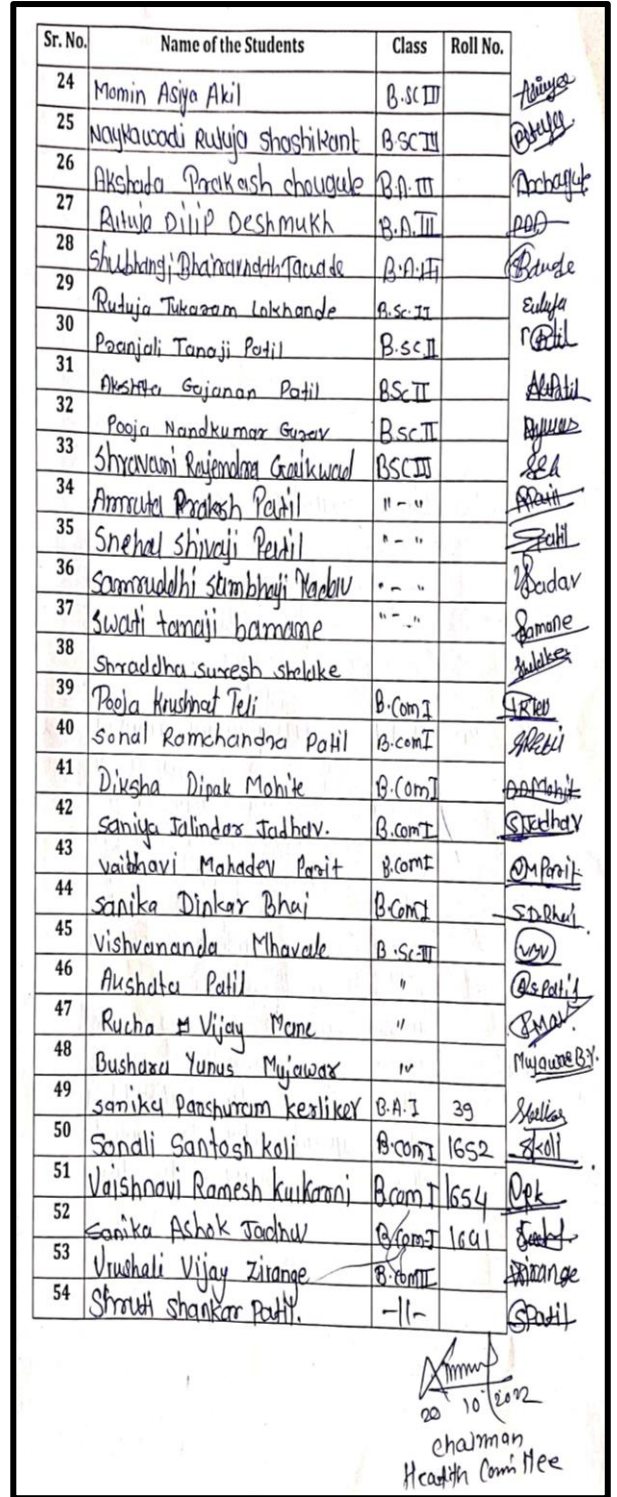 Sr. No. Name of the Students Class Roll No.
24 Momin Asiya Akil B.SC III
25 Naykawadi Rutuja Shashikant B.SC III
26 Akshada Prakash chougule B.A. III Apchagule
27 Rutuja Dilip Deshmukh B.A. III
28 Shubhangi Bhairavnath Tawade B.A. III
29 Rutuja Tukaram Lokhande B.Sc. II
30 Pranjali Tanaji Patil B.SC II Patil
31 Akshta Gajanan Patil BSc II AGPatil
32 Pooja Nandkumar Gurav B.SC II
33 Shravani Rajendra Gaikwad BSC III
34 Amruta Prakash Patil " - " APatil
35 Snehal Shivaji Patil " - " SPatil
36 Samruddhi Sambhaji Yadav " - " Yadav
37 Swati tanaji bamane " - " Bamane
38 Shraddha suresh shelake Shelake
39 Pooja Krushnat Teli B.Com I PKTeli
40 Sonal Ramchandra Patil B.com I
41 Diksha Dipak Mohite B.Com I DDMohit
42 Saniya Jalindar Jadhav. B.com I SJadhav
43 vaibhavi Mahadev Parit B.com I VMParit
44 Sanika Dinkar Bhai B.Com I S.D.Bhai.
45 vishvananda Mhavale B.Sc-III
46 Akshata Patil " ASPatil
47 Rucha Vijay Mane "
48 Bushara Yunus Mujawar " Mujawar B.Y.
49 Sanika Parshuram kerliker B.A.I 39
50 Sonali Santosh koli B.com I 1652 Skoli
51 Vaishnavi Ramesh kulkarni B.com I 1654
52 Sanika Ashok Jadhav B.Com-I 1641
53 Vrushali Vijay Zirange B.com II Zirange
54 Shruti Shankar Patil. -||- SPatil
20 10 2022
Chairman
Health Committee